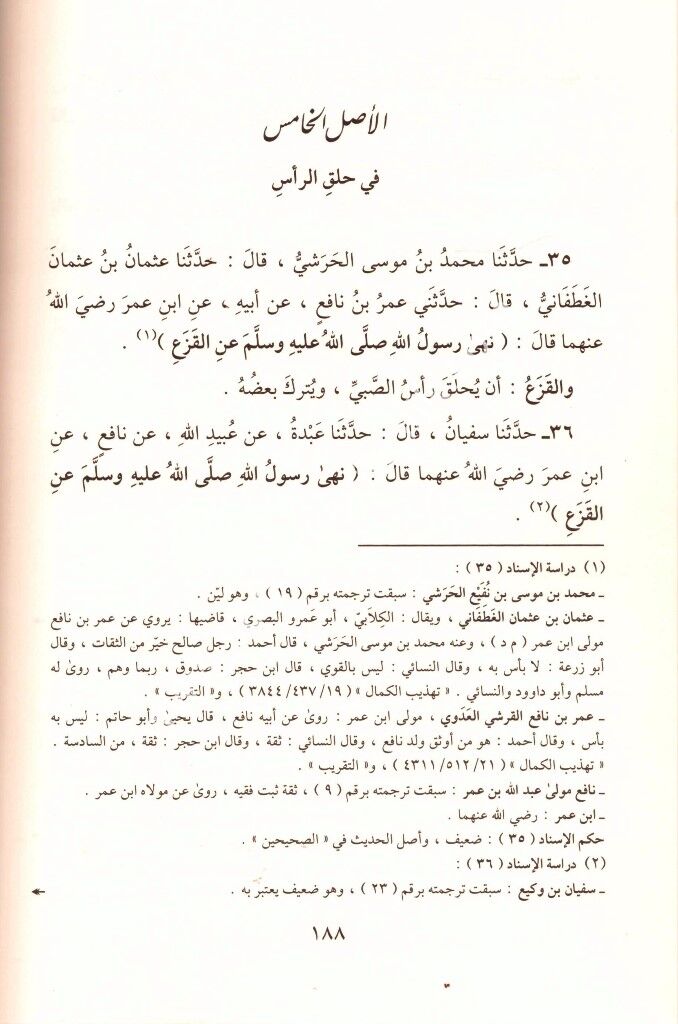 الأصل الخامس
في حلقِ الرأسِ
٣٥ـ حدَّثنَا محمدُ بنُ موسى الحَرَشيُّ ، قالَ : حدَّثنَا عثمانُ بنُ عثمانَ
الغَطَفَانيُّ ، قالَ : حدَّثنَي عمرُ بنُ نافعٍ ، عن أبيهِ ، عنِ ابنِ عمرَ رضيَ اللهُ
عنهما قالَ : ( نهىٰ رسولُ اللهِ صلَّى اللهُ عليهِ وسلَّمَ عنِ القَزَعِ )(١) .
والقَزَعُ : أن يُحلَقَ رأسُ الصَّبيِّ ، ويُتركَ بعضُهُ .
٣٦ـ حدَّثنَا سفيانُ ، قالَ : حدَّثنَا عَبْدةُ ، عن عُبيدِ اللهِ ، عن نافعٍ ، عنِ
ابنِ عمرَ رضيَ اللهُ عنهما قالَ : ( نهىٰ رسولُ اللهِ صلَّى اللهُ عليهِ وسلَّمَ عنِ
القَزَعِ )(٢) .
(١) دراسة الإسناد ( ٣٥ ) :
ـ محمد بن موسى بن نُفَيْع الحَرَشي : سبقت ترجمته برقم ( ١٩ ) ، وهو ليّن .
ـ عثمان بن عثمان الغَطَفَاني ، ويقال : الكِلَابيّ ، أبو عَمرو البصري ، قاضيها : يروي عن عمر بن نافع
مولى ابن عمر ( م د ) ، وعنه محمد بن موسى الحَرَشي ، قال أحمد : رجل صالح خيّر من الثقات ، وقال
أبو زرعة : لا بأس به ، وقال النسائي : ليس بالقوي ، قال ابن حجر : صدوق ، ربما وهم ، روىٰ له
مسلم وأبو داوود والنسائي . « تهذيب الكمال » ( ١٩/ ٤٣٧/ ٣٨٤٤ ) ، و« التقريب » .
ـ عمر بن نافع القرشي العَدَوي ، مولى ابن عمر : روىٰ عن أبيه نافع ، قال يحيىٰ وأبو حاتم : ليس به
بأس ، وقال أحمد : هو من أوثق ولد نافع ، وقال النسائي : ثقة ، وقال ابن حجر : ثقة ، من السادسة .
« تهذيب الكمال » ( ٢١/ ٥١٢/ ٤٣١١ ) ، و« التقريب » .
ـ نافع مولىٰ عبد الله بن عمر : سبقت ترجمته برقم ( ٩ ) ، ثقة ثبت فقيه ، روىٰ عن مولاه ابن عمر .
ـ ابن عمر : رضي الله عنهما .
حكم الإسناد ( ٣٥ ) : ضعيف ، وأصل الحديث في « الصحيحين » .
(٢) دراسة الإسناد ( ٣٦ ) :
ـ سفيان بن وكيع : سبقت ترجمته برقم ( ٢٣ ) ، وهو ضعيف يعتبر به .
١٨٨